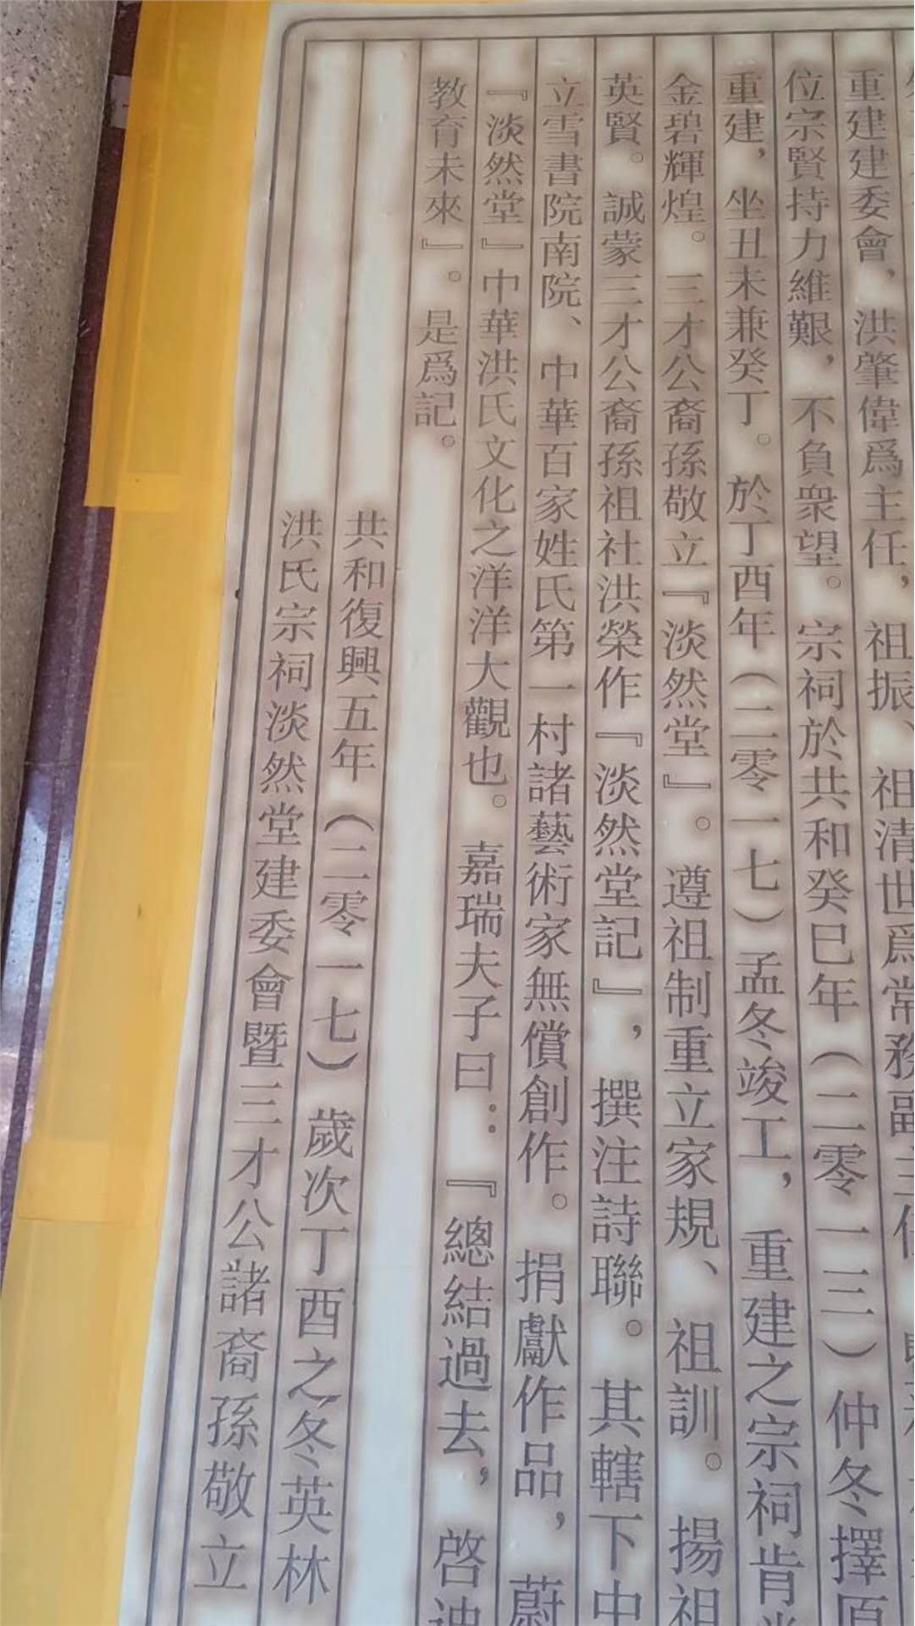 重建建委會，洪肇偉爲主任，祖振、祖清世爲常務副主任
位宗賢持力維艱，不負衆望。宗祠於共和癸巳年（二零一三）仲冬擇原
重建，坐丑未兼癸丁。於丁酉年（二零一七）孟冬竣工，重建之宗祠肯
金碧輝煌。三才公裔孫敬立『淡然堂』。遵祖制重立家規、祖訓。揚祖
英賢。誠蒙三才公裔孫祖社洪榮作『淡然堂記』，撰注詩聯。其轄下中
立雪書院南院、中華百家姓氏第一村諸藝術家無償創作。捐獻作品，蔚
『淡然堂』中華洪氏文化之洋洋大觀也。嘉瑞夫子曰：『總結過去，啓迪
教育未來』。是爲記。
共和復興五年（二零一七）歲次丁酉之冬英林
洪氏宗祠淡然堂建委會暨三才公諸裔孫敬立